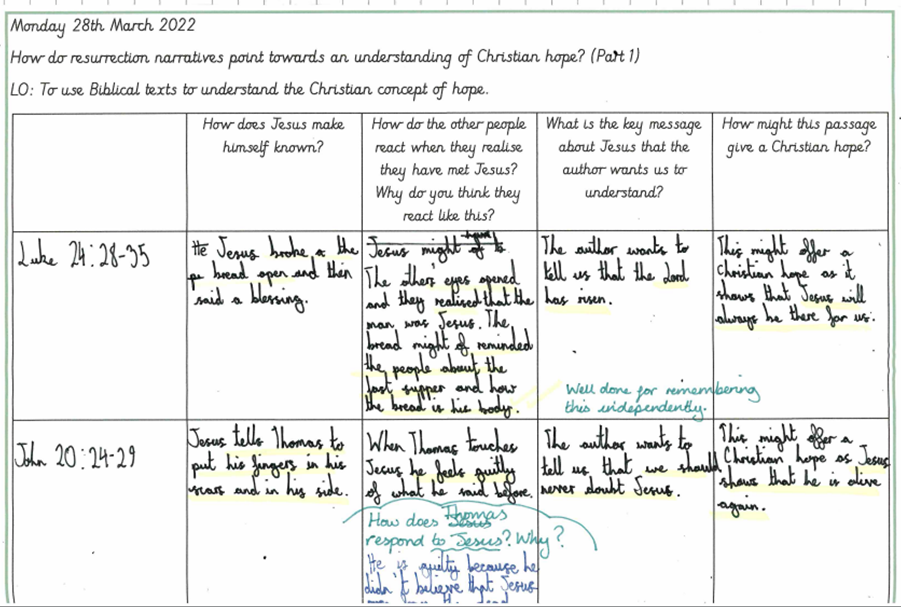 Monday 28th March 2022
How do resurrection narratives point towards an understanding of Christian hope? (Part 1)
LO: To use Biblical texts to understand the Christian concept of hope.
How does Jesus make
himself known?
How do the other people
react when they realise
they have met Jesus?
Why do you think they
react like this?
What is the key message
about Jesus that the
author wants us to
understand?
How might this passage
give a Christian hope?
Luke 24:28-35
He Jesus broke the
bread open and then
said a blessing.
Jesus might of
The others eyes opened
and they realised that the
man was Jesus. The
bread might of reminded
the people about the
last supper and how
the bread is his body.
The author wants to
tell us that the Lord
has risen.
Well done for remembering
this independently.
This might offer a
Christian hope as it
shows that Jesus will
always be there for us.
John 20:24-29
Jesus tells Thomas to
put his fingers in his
scars and in his side.
When Thomas touches
Jesus he feels guilty
of what he said before.
How does Jesus Thomas
respond to Jesus? Why?
He is guilty because he
didn't believe that Jesus
The author wants to
tell us that we should
never doubt Jesus.
This might offer a
Christian hope as Jesus
shows that he is alive
again.